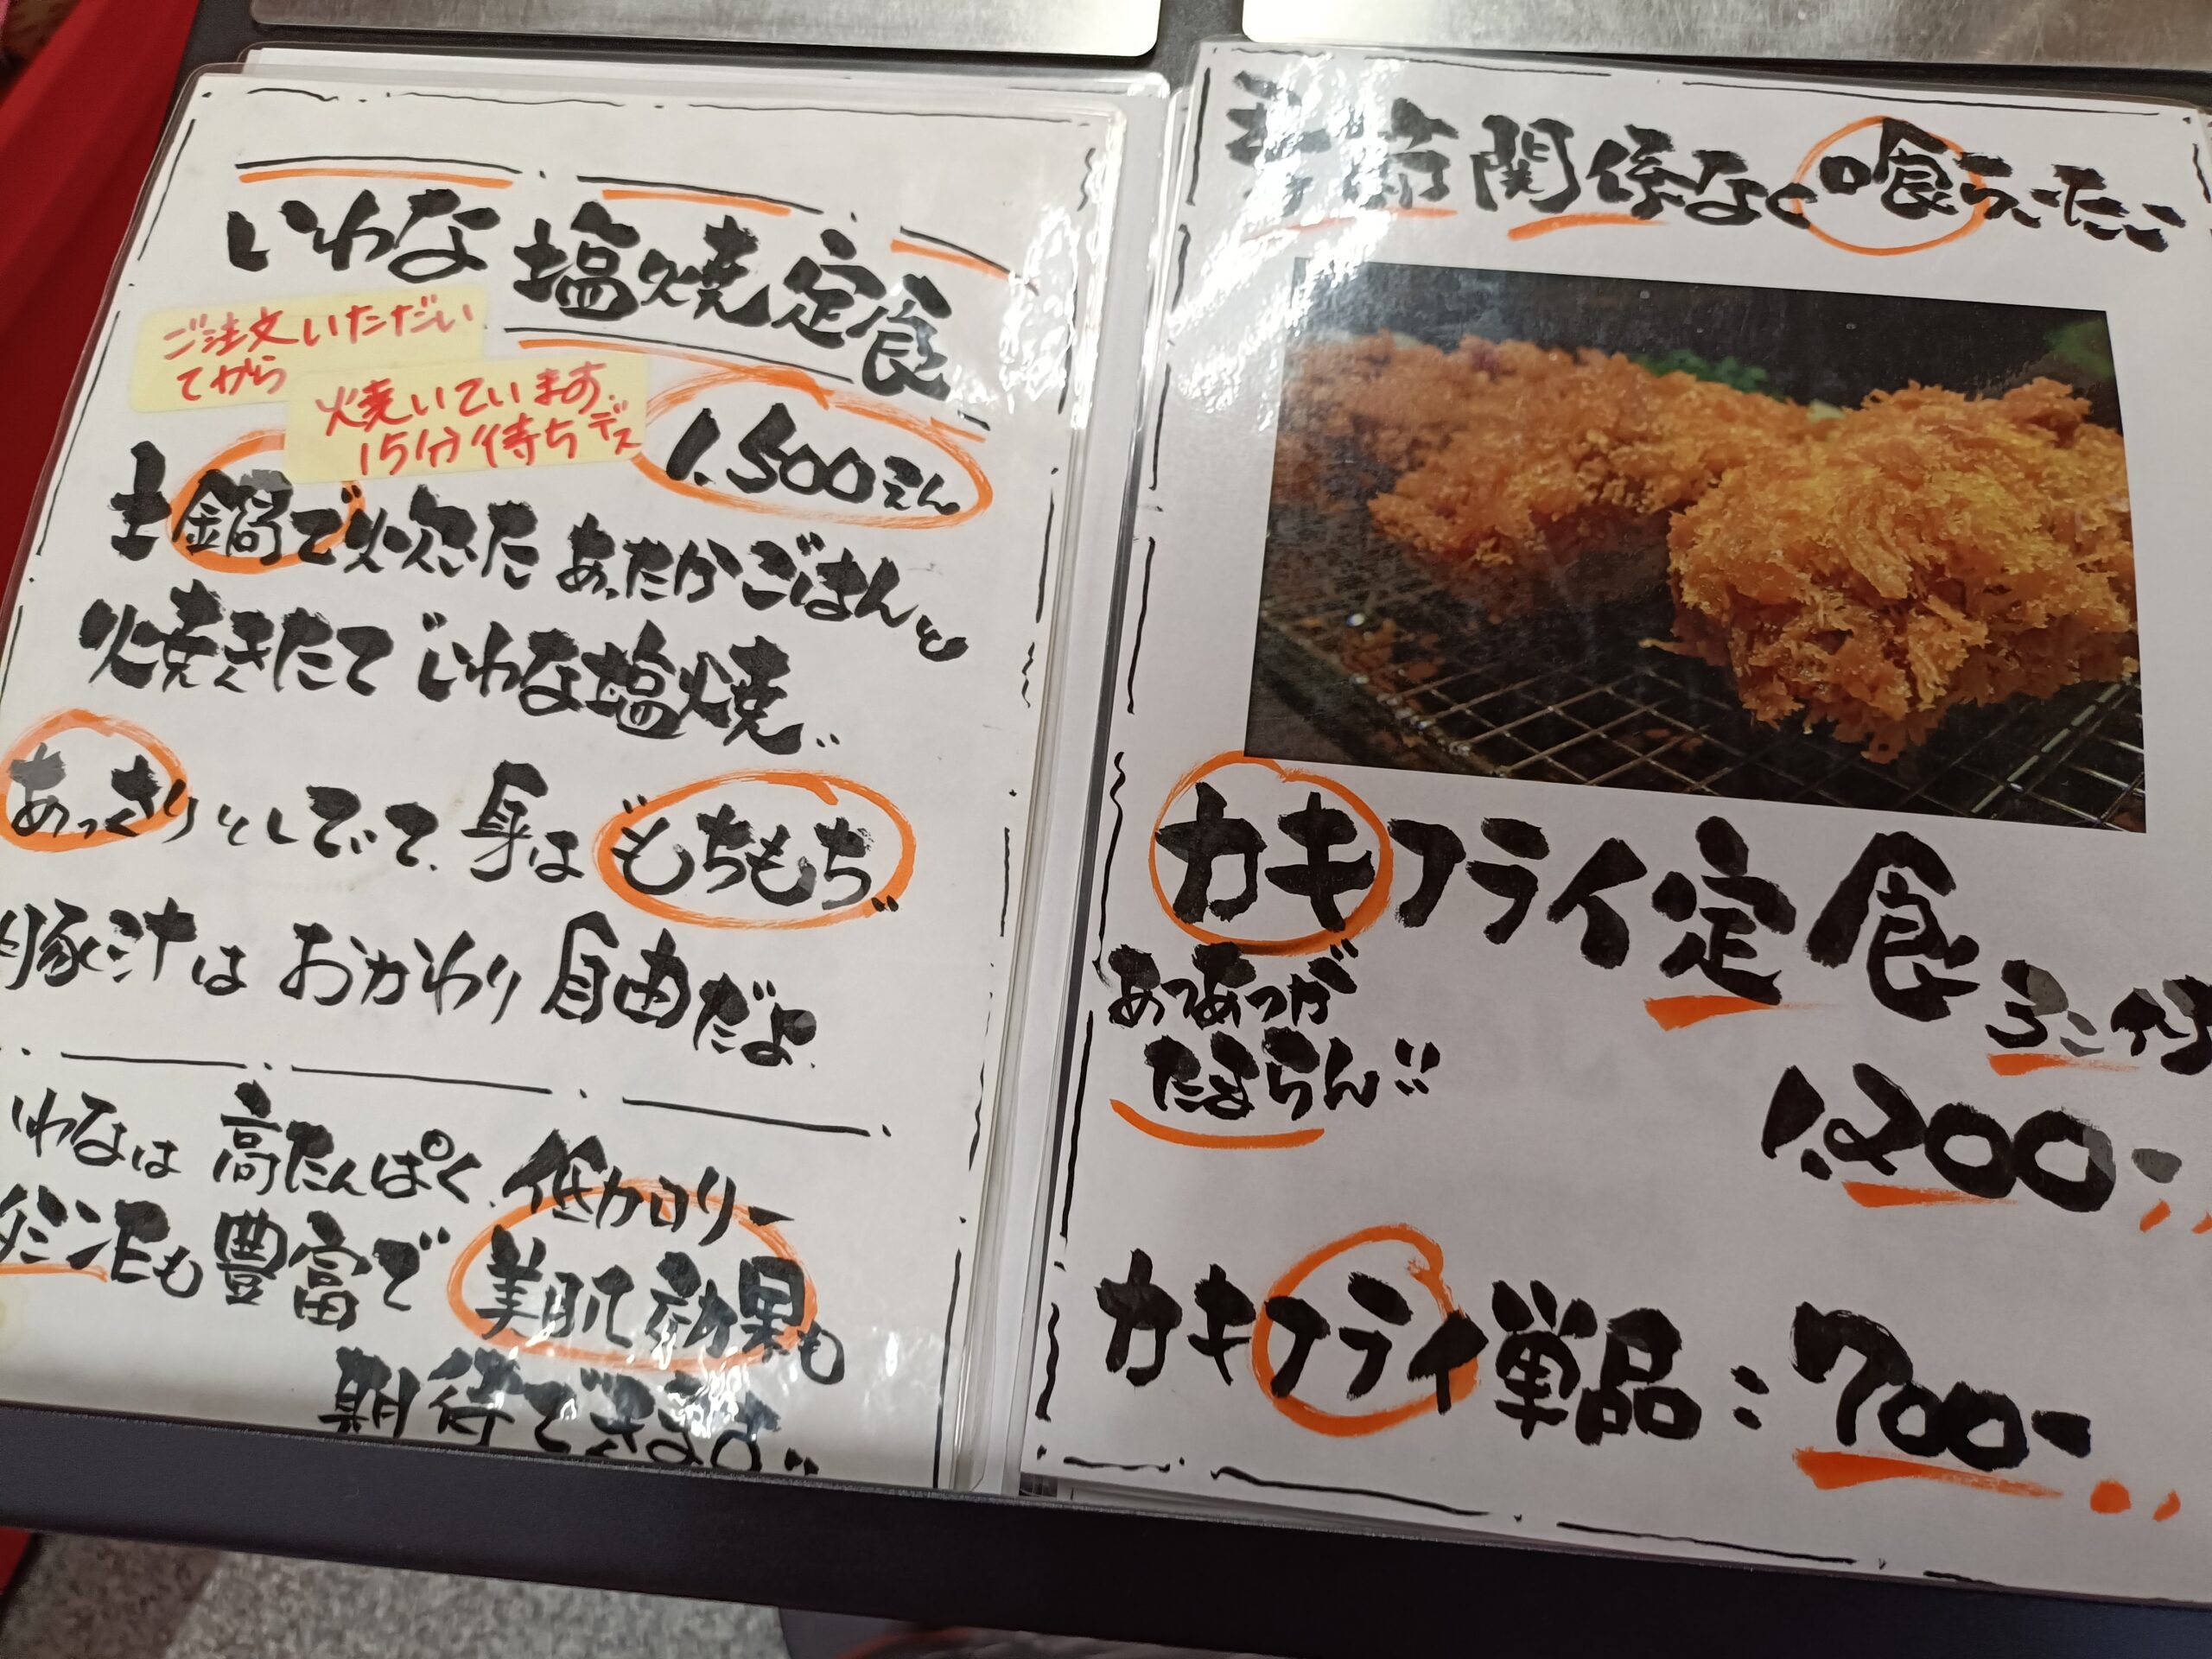 いわな塩焼定食
ご注文いただい
てから
焼いています。
15分待ちデス
1.500えん
土鍋で炊きた あったかごはんと
焼きたて いわな塩焼
あっさりとしてて、身は もちもち
豚汁は おかわり 自由だよ
いわなは 高たんぱく、低カロリー
ビタミンEも 豊富で 美肌効果も
期待できます
季節関係なく喰らいたい
カキフライ定食
あつあつが
たまらん!!
1.200-
カキフライ単品:700-